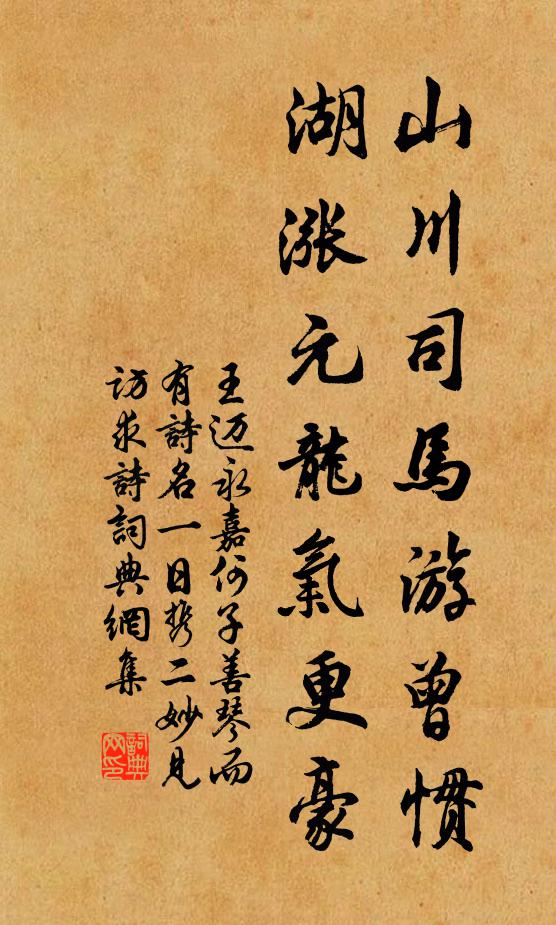 山川司馬游曾慣
湖漲元龍氣更豪
王迈永嘉何子善琴而
有詩名一日携二妙見
訪求詩詞典網集
詞典
网印